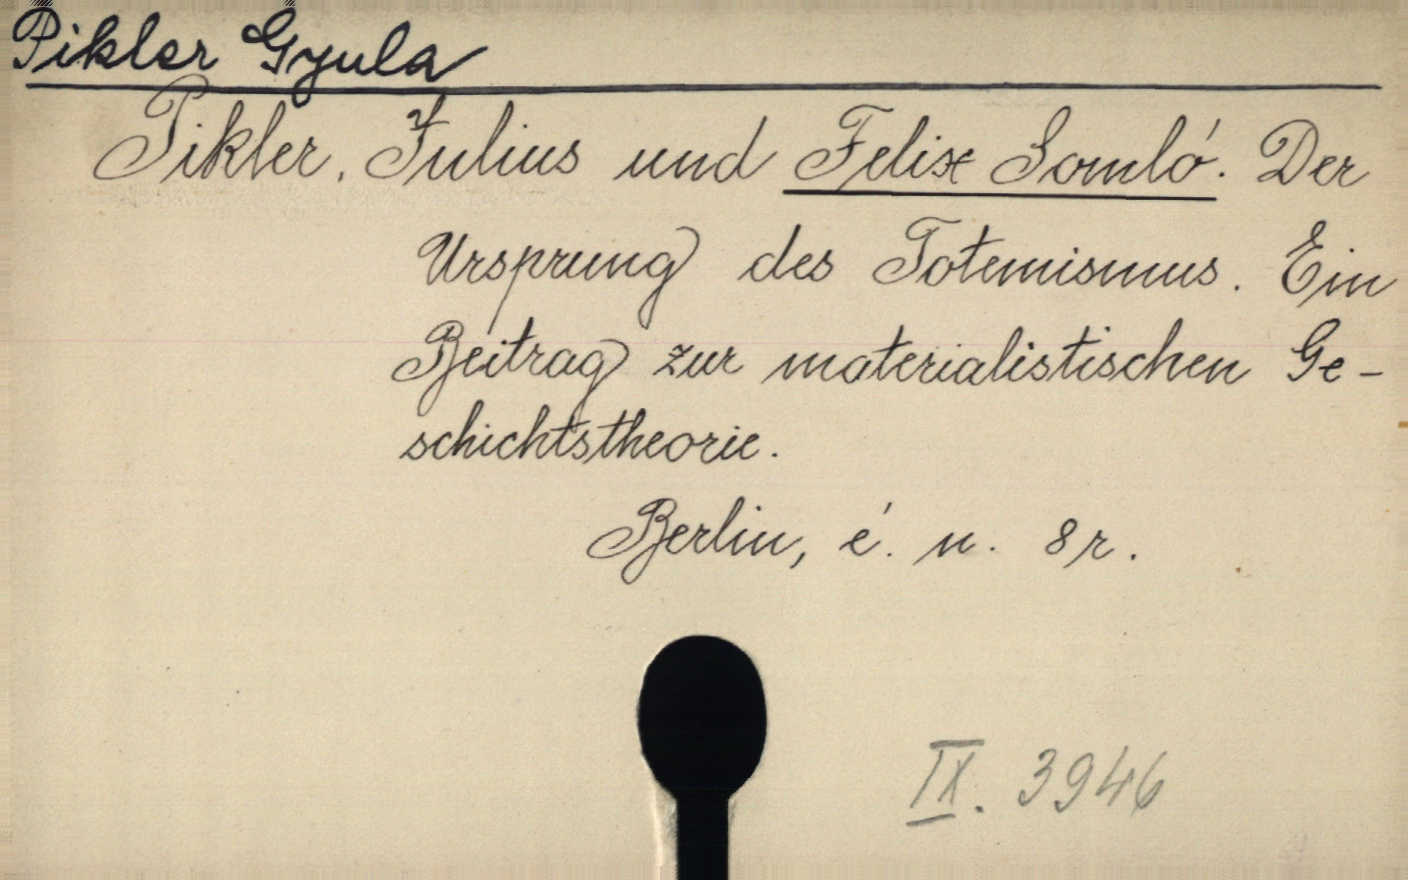 Pikler Gyula
Pikler, Julius und Felix Somló. Der
Ursprung des Totemismus. Ein
Beitrag zur materialistischen Ge-
schichtstheorie.
Berlin, é. n. 8r.
IX. 3946